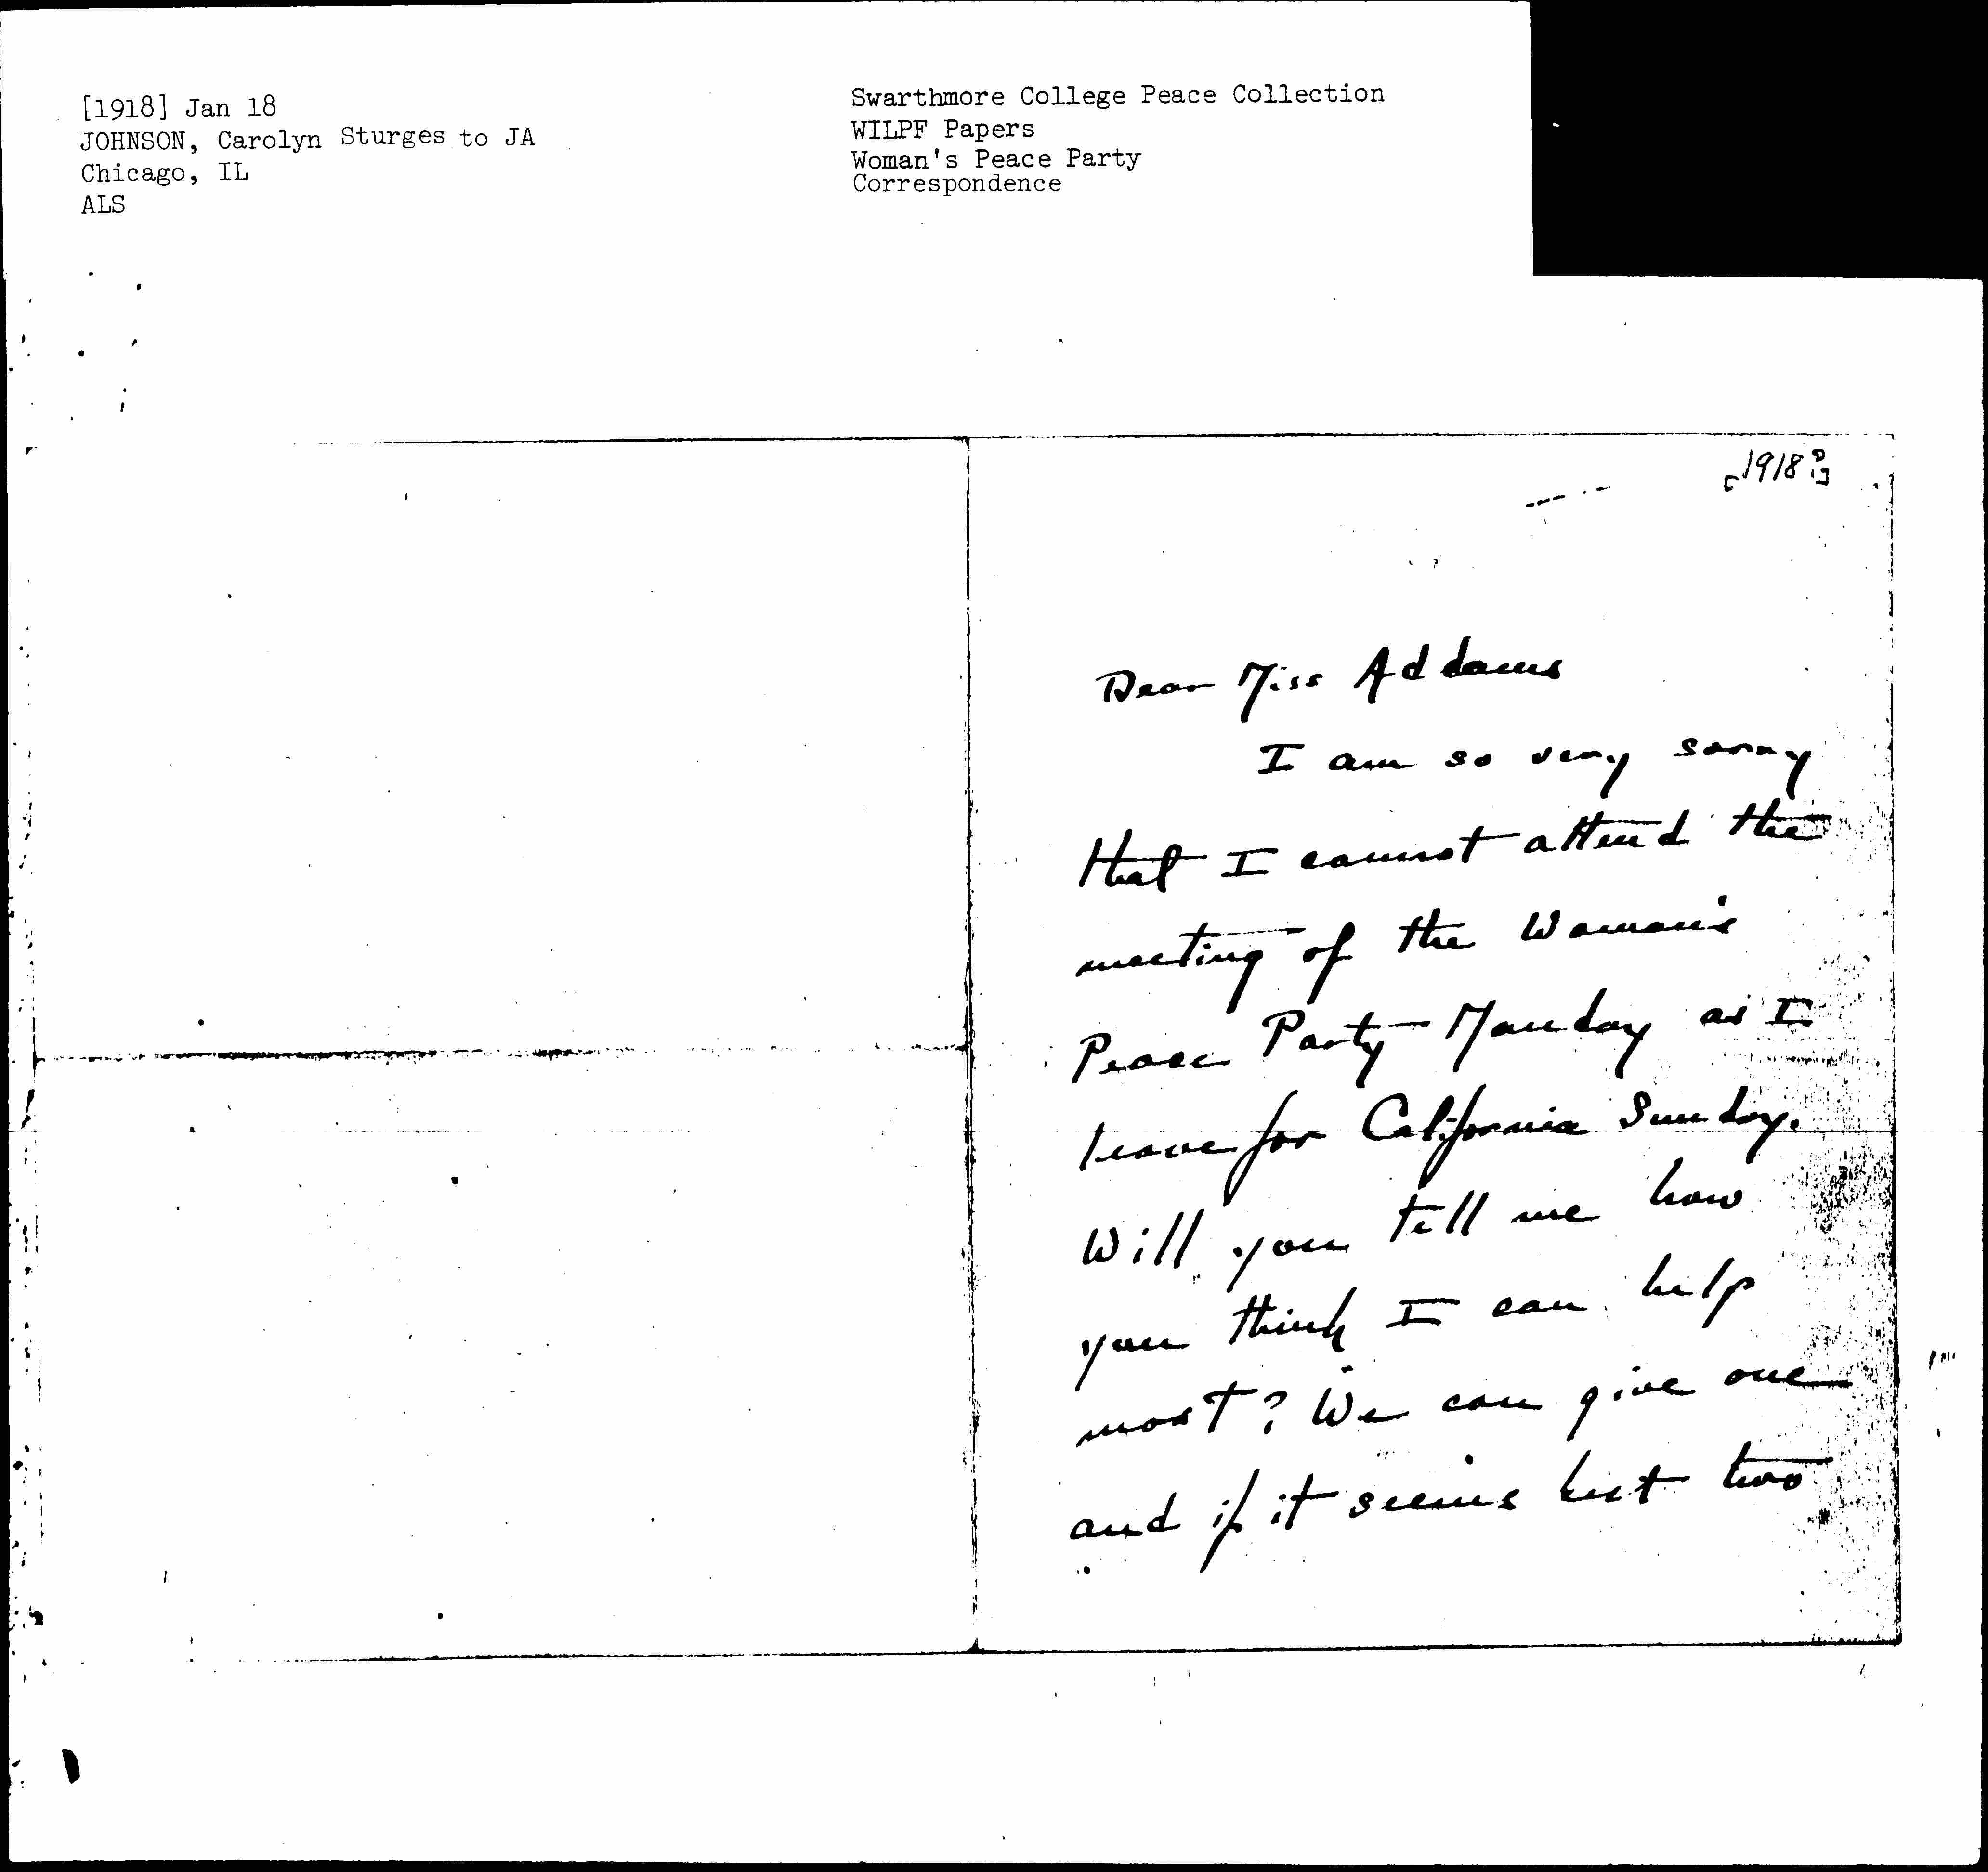 [1918] Jan 18
JOHNSON, Carolyn Sturges to JA
Chicago, IL
ALS
Swarthmore College Peace Collection
WILPF Papers
Woman's Peace Party
Correspondence
[1918?]
Dear Miss Addams
I am so very sorry
that I cannot attend the
meeting of the Woman's
Peace Party Monday as I
leave for California Sunday.
Will you tell me how
you think I can help
most? We can give one
and if it seems best two